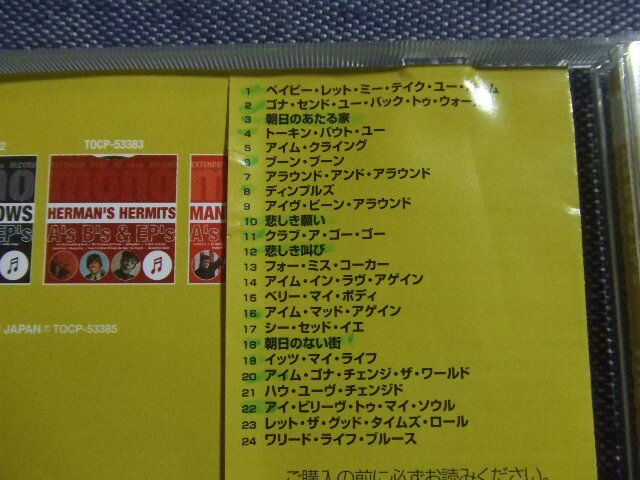 2
TOCP-53383
HERMAN'S HERMITS
A's B's & EP's
OWS
EP's
MAN
A's B
JAPAN Ⓣ TOCP-53385
1 ベイビー・レット・ミー・テイク・ユー・ ム
2 ゴナ・センド・ユー・バック・トゥ・ウォー
3 朝日のあたる家
4 トーキン・バウト・ユー
5 アイム・クライング
6 ブーン・ブーン
7 アラウンド・アンド・アラウンド
8 ディンプルズ
9 アイヴ・ビーン・アラウンド
10 悲しき願い
11 クラブ・ア・ゴー・ゴー
12 悲しき叫び
13 フォー・ミス・コーカー
14 アイム・イン・ラヴ・アゲイン
15 ベリー・マイ・ボディ
16 アイム・マッド・アゲイン
17 シー・セッド・イエ
18 朝日のない街
19 イッツ・マイ・ライフ
20 アイム・ゴナ・チェンジ・ザ・ワールド
21 ハウ・ユーヴ・チェンジド
22 アイ・ビリーヴ・トゥ・マイ・ソウル
23 レット・ザ・グッド・タイムズ・ロール
24 ワリード・ライフ・ブルース
ご購入の前に必ずお読みください。